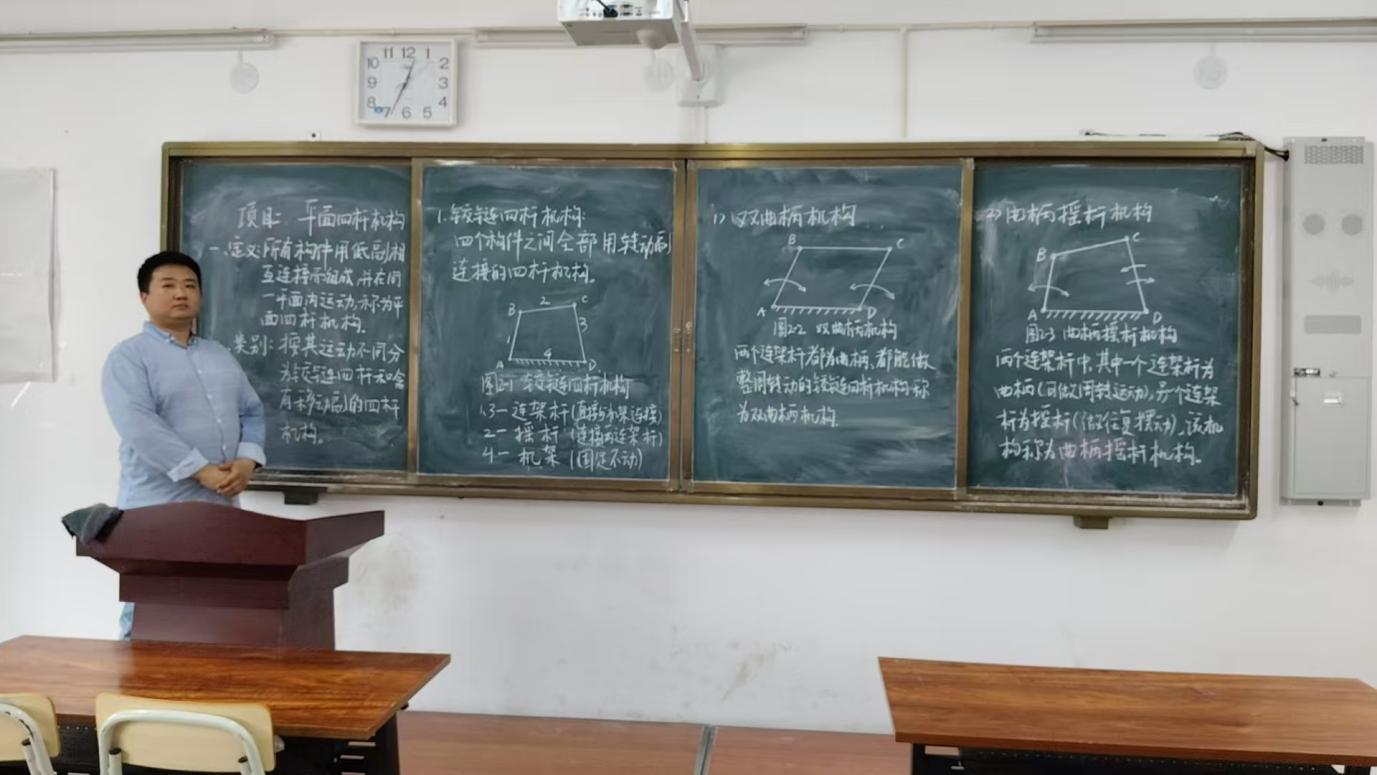 11 12 1
10 2
9 3
8 4
7 6 5
项目: 平面四杆机构
一.定义:所有构件用低副相
互连接而组成,并在同
一平面内运动,称为平
面四杆机构。
类别:按其运动不同分
为铰链四杆和含
有移动副的四杆
机构。
1.铰链四杆机构:
四个构件之间全部用转动副
连接的四杆机构。
B 2 C
1 3
A 4 D
图2-1 铰链四杆机构
1,3—连架杆(直接与机架连接)
2— 摇杆 (连接两连架杆)
4— 机架 (固定不动)
1)双曲柄机构
B C
A D
图2-2 双曲柄机构
两个连架杆都为曲柄,都能做
整周转动的铰链四杆机构称
为双曲柄机构。
2)曲柄摇杆机构
B C
A D
图2-3 曲柄摇杆机构
两个连架杆中,其中一个连架杆为
曲柄(可做圆周转运动),另个连架
杆为摇杆(做往复摆动),该机
构称为曲柄摇杆机构。